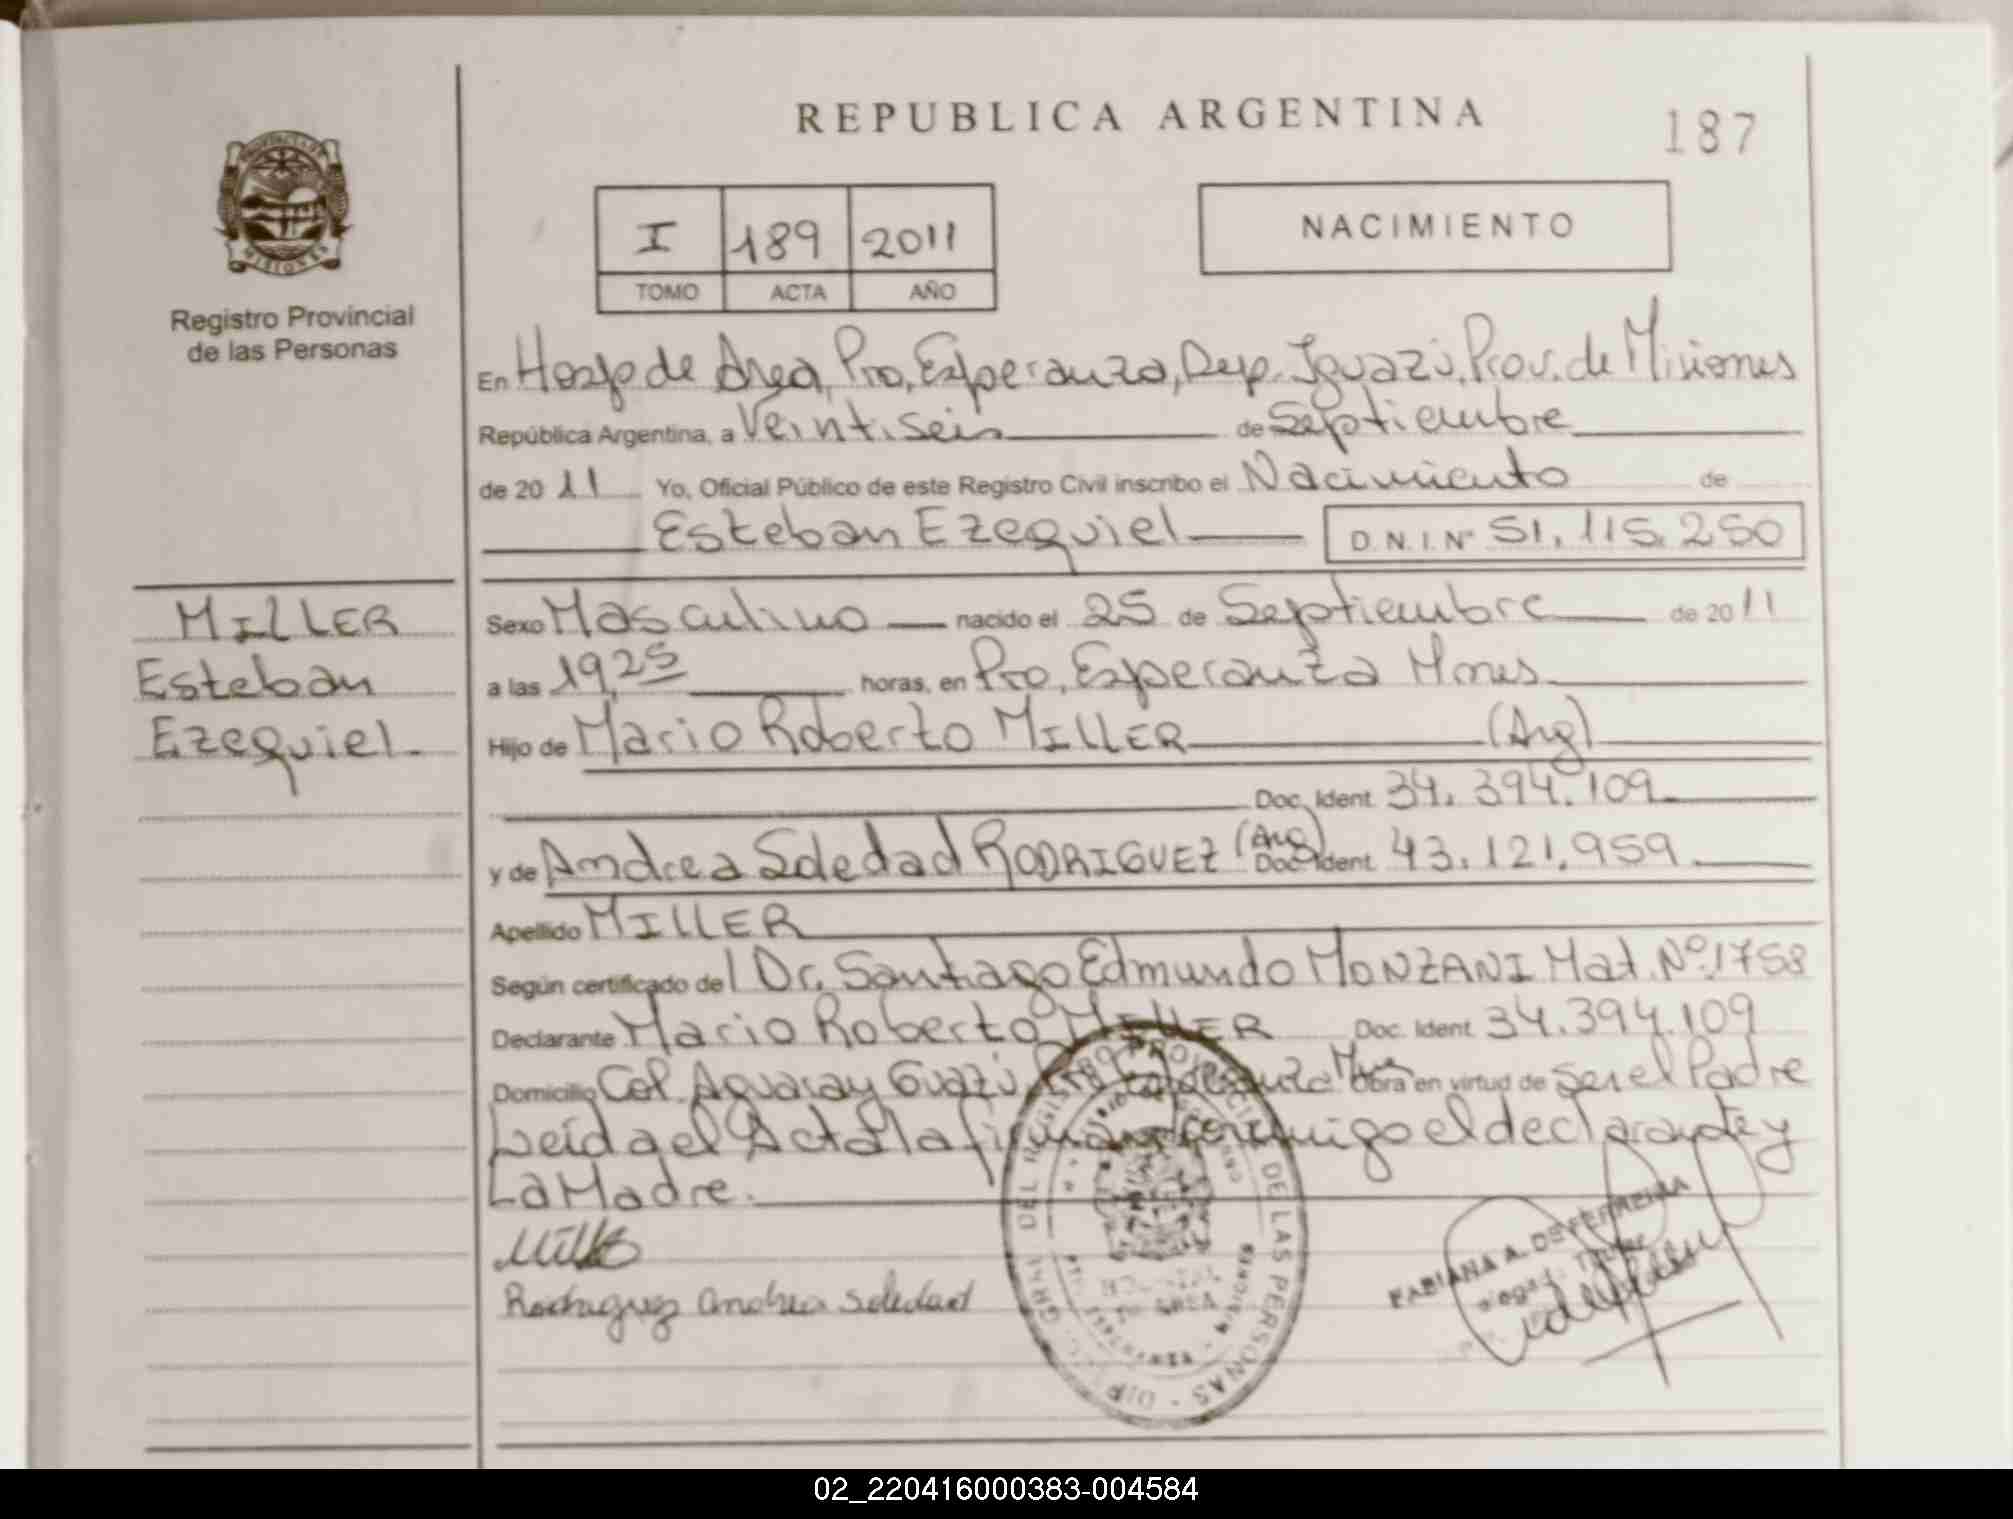 REPUBLICA ARGENTINA
187
PROVINCIA DE
MISIONES
Registro Provincial
de las Personas
I 189 2011
TOMO ACTA AÑO
NACIMIENTO
En Hosp de Area, Pto, Esperanza, Dep. Iguazú, Prov. de Misiones
República Argentina, a Veintiseis de Septiembre
de 2011 Yo, Oficial Público de este Registro Civil inscribo el Nacimiento de
Esteban Ezequiel D.N.I.Nº 51.115.250
MILLER
Esteban
Ezequiel.
Sexo Masculino nacido el 25 de Septiembre de 2011
a las 19,25 horas, en Pto, Esperanza Mnes
Hijo de Mario Roberto MILLER (Arg)
Doc. Ident. 34.394.109
y de Andrea Soledad RODRIGUEZ (Arg) Doc. Ident. 43.121.959
Apellido MILLER
Según certificado del Dr. Santiago Edmundo MONZANI Mat. Nº 1758
Declarante Mario Roberto MILLER Doc. Ident. 34.394.109
Domicilio Col. Aguaray Guazú Pto Esperanza Mnes Obra en virtud de ser el Padre
Leida el Acta la firman conmigo el declarante y
La Madre.
Rodriguez Andrea Soledad
DEL REGISTRO PROVINCIAL DE LAS PERSONAS
HOSPITAL
DE AREA
ESPERANZA - MISIONES
FABIANA A. DE FERREIRA
02_220416000383-004584